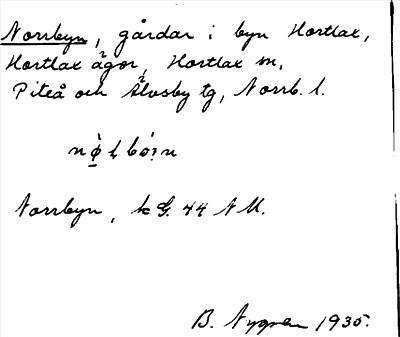 Norrbyn, gårdar i byn Hortlax,
Hortlax ägor, Hortlax sn,
Piteå och Älvsby tg, Norrb. l.
Norrbyn, k G. 44 N M.
B. Nygren 1935.